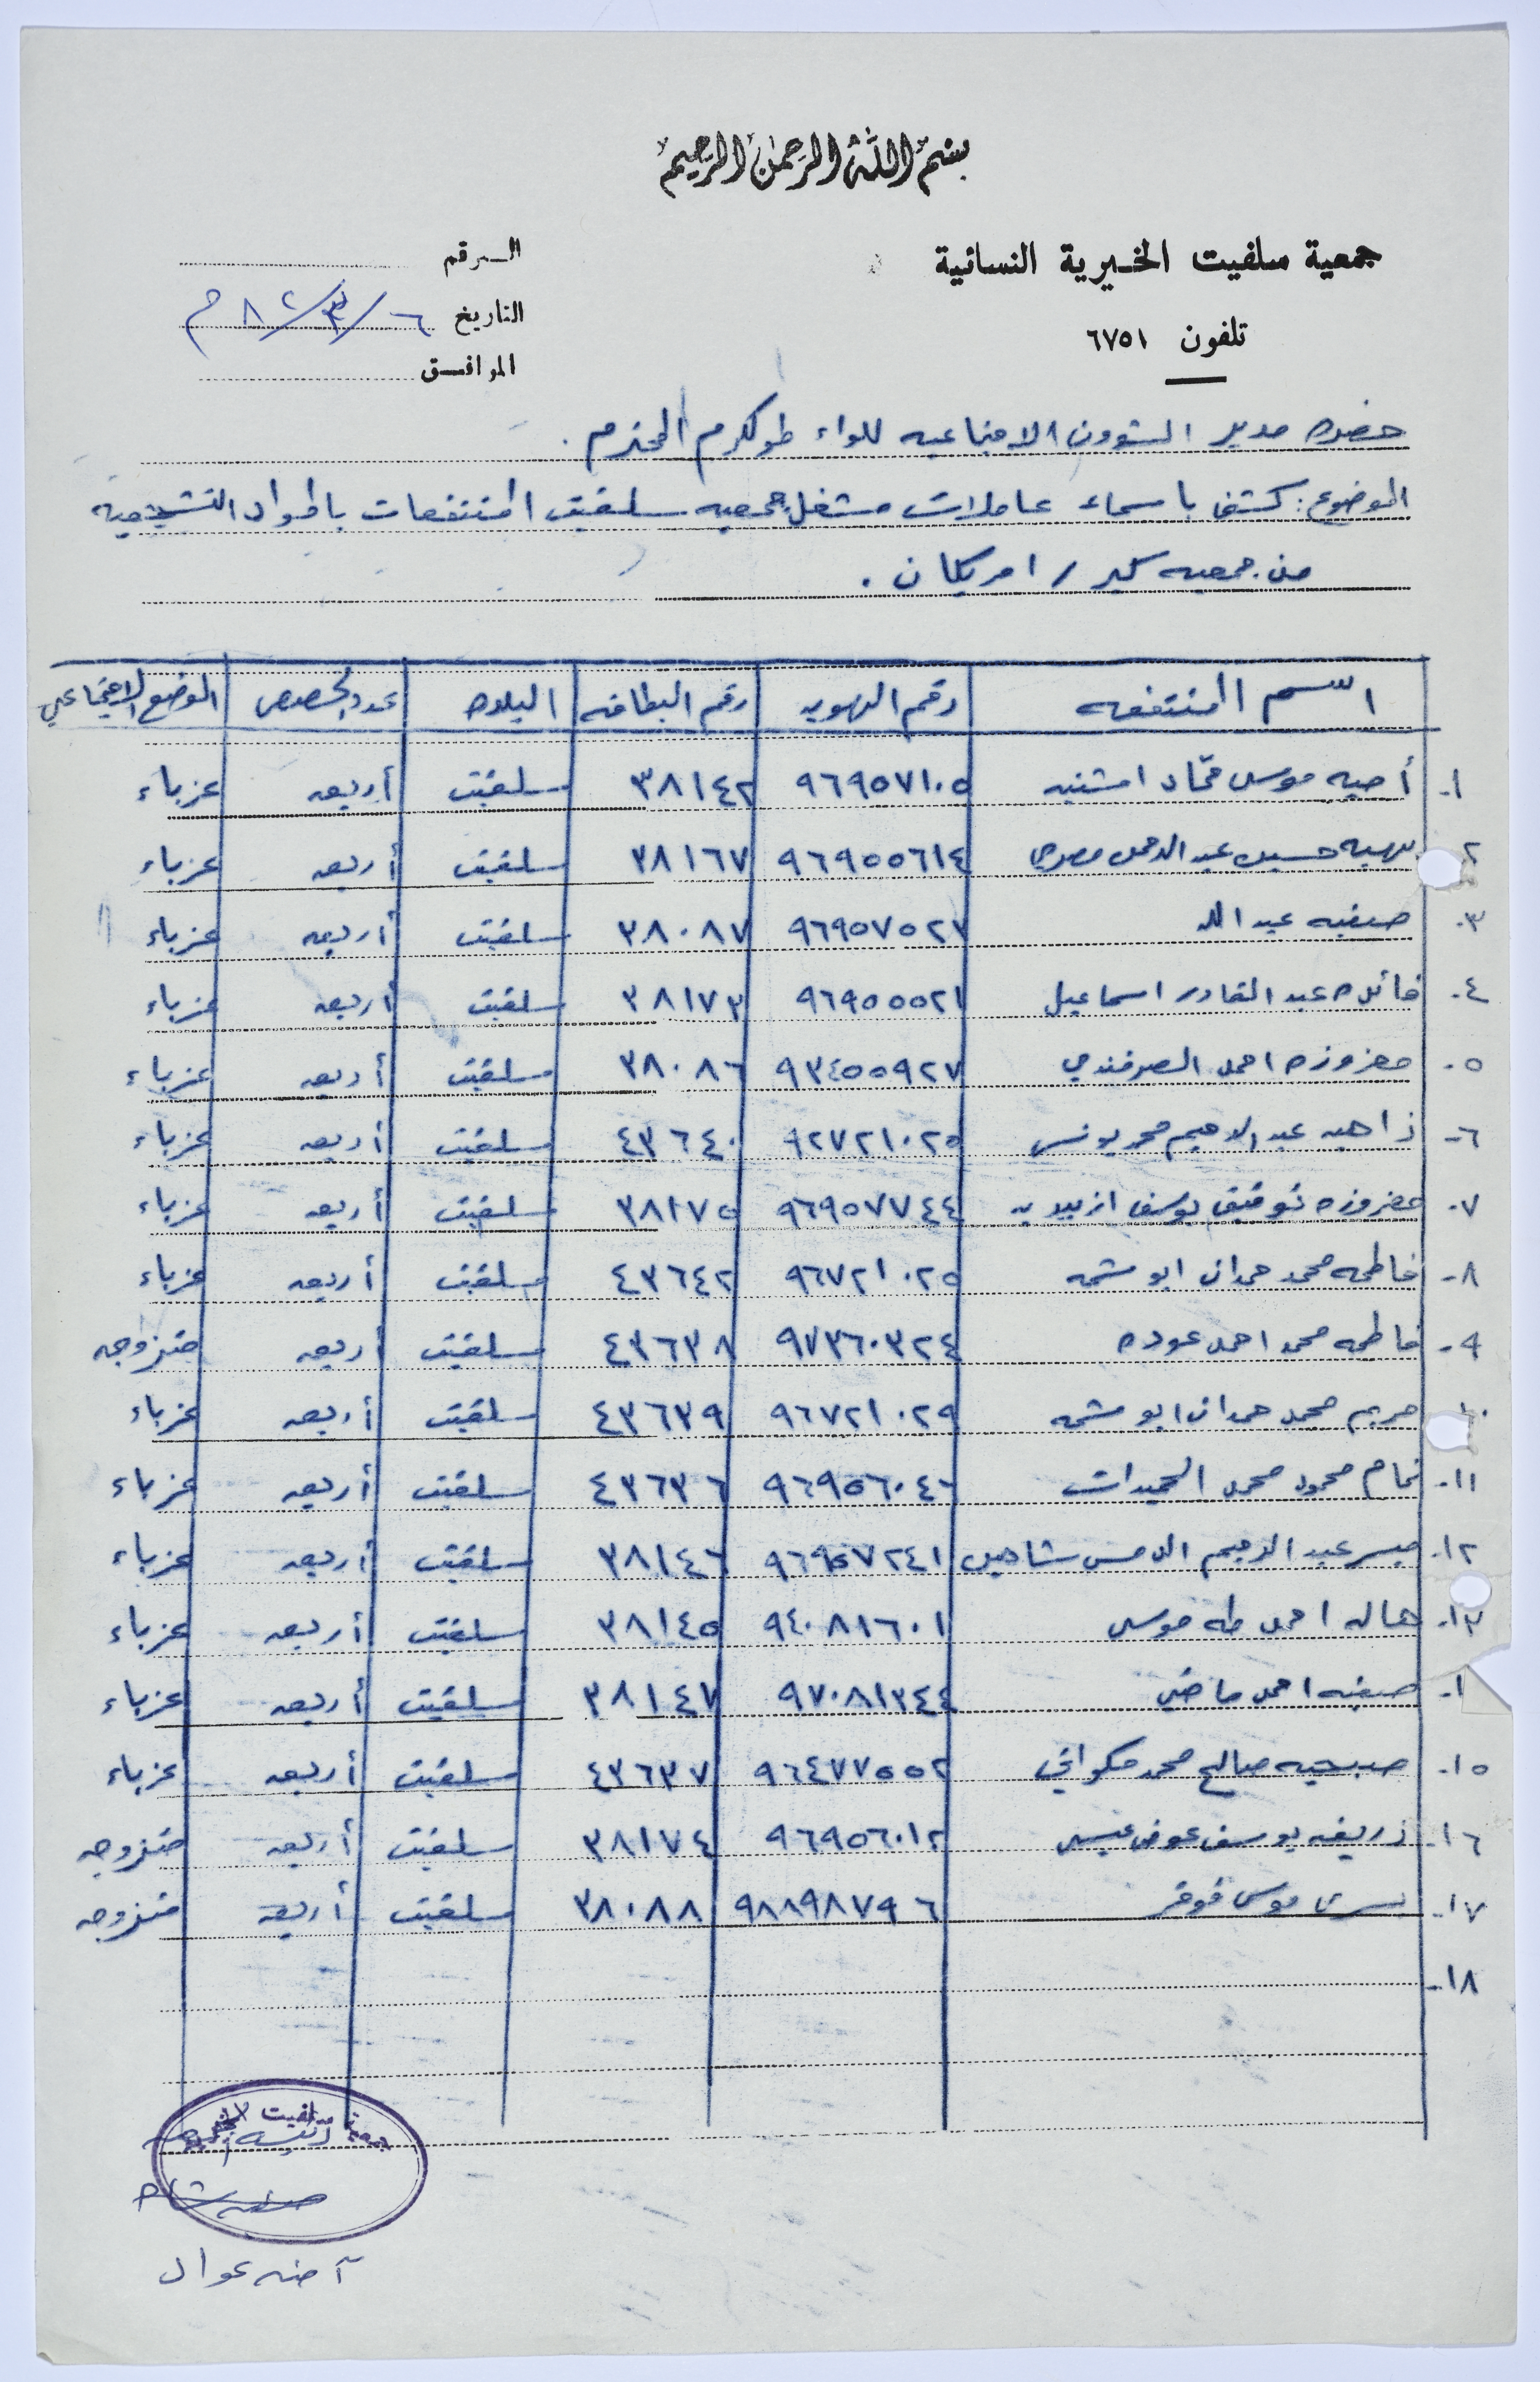 بسم الله الرحمن الرحيم
جمعية سلفيت الخيرية النسائية
تلفون ٦٧٥١
الرقم
التاريخ ٦/٣/٨٢ م
الموافق
حضرة مدير الشؤون الاجتماعيه للواء طولكرم المحترم .
الموضوع : كشف باسماء عاملات مشغل جمعيه سلفيت المنتفعات بالمواد التشجيعيه
من جمعيه كير / امريكان .
اسم المنتفعه رقم الهويه رقم البطاقه البلده عدد الحصص الوضع الاجتماعي
١- موسى حمّاد اشتيه ٩٦٩٥٧١٠٥ ٣٨١٤٢ سلفيت أربعه عزباء
٢ بهيه حسين عبد الرحمن مصري ٩٦٩٥٥٦١٤ ٣٨١٦٧ سلفيت أربعه عزباء
٣- صفيه عبد الله ٩٦٩٥٧٥٢٧ ٣٨٠٨٧ سلفيت أربعه عزباء
٤- فائده عبد القادر اسماعيل ٩٦٩٥٥٥٢١ ٣٨١٧٣ سلفيت أربعه عزباء
٥- معزوزه احمد الصرفندي ٩٣٤٥٥٩٢٧ ٣٨٠٨٦ سلفيت أربعه عزباء
٦- زاهيه عبد الرحيم محمد يونس ٩٢٧٢١٠٢٥ ٤٣٦٤٠ سلفيت أربعه عزباء
٧- معزوزه توفيق يوسف ازبيديه ٩٦٩٥٧٧٤٤ ٣٨١٧٥ سلفيت أربعه عزباء
٨- فاطمه محمد حمدان ابو شمه ٩٦٧٢١٠٢٥ ٤٣٦٤٢ سلفيت أربعه عزباء
٩- فاطمه محمد احمد عوده ٩٧٣٦٠٣٢٤ ٤٣٦٣٨ سلفيت أربعه متزوجه
١٠ مريم محمد حمدان ابو شمه ٩٦٧٢١٠٢٩ ٤٣٦٣٩ سلفيت أربعه عزباء
١١- تمام محمود محمد الحميدات ٩٦٩٥٦٠٤٦ ٤٣٦٣٦ سلفيت أربعه عزباء
١٢- ميسر عبد الرحيم شاهين ٩٦٩٥٧٢٤١ ٣٨١٤٦ سلفيت أربعه عزباء
١٣- هاله احمد طه موسى ٩٤٠٨١٦٠١ ٣٨١٤٥ سلفيت أربعه عزباء
١- صفيه احمد ماضي ٩٧٠٨١٣٤٤ ٣٨١٤٧ سلفيت أربعه عزباء
١٥- صبحيه صالح محمد ٩٦٤٧٧٥٥٢ ٤٣٦٣٧ سلفيت أربعه عزباء
١٦- زريفه يوسف عوض عيسى ٩٦٩٥٦٠١٢ ٣٨١٧٤ سلفيت أربعه متزوجه
١٧- يسرى موسى ٩٨٨٩٨٧٩٦ ٣٨٠٨٨ سلفيت أربعه متزوجه
١٨-
جمعية سلفيت الخيرية
رئيسه الجمعيه
آمنه عواد